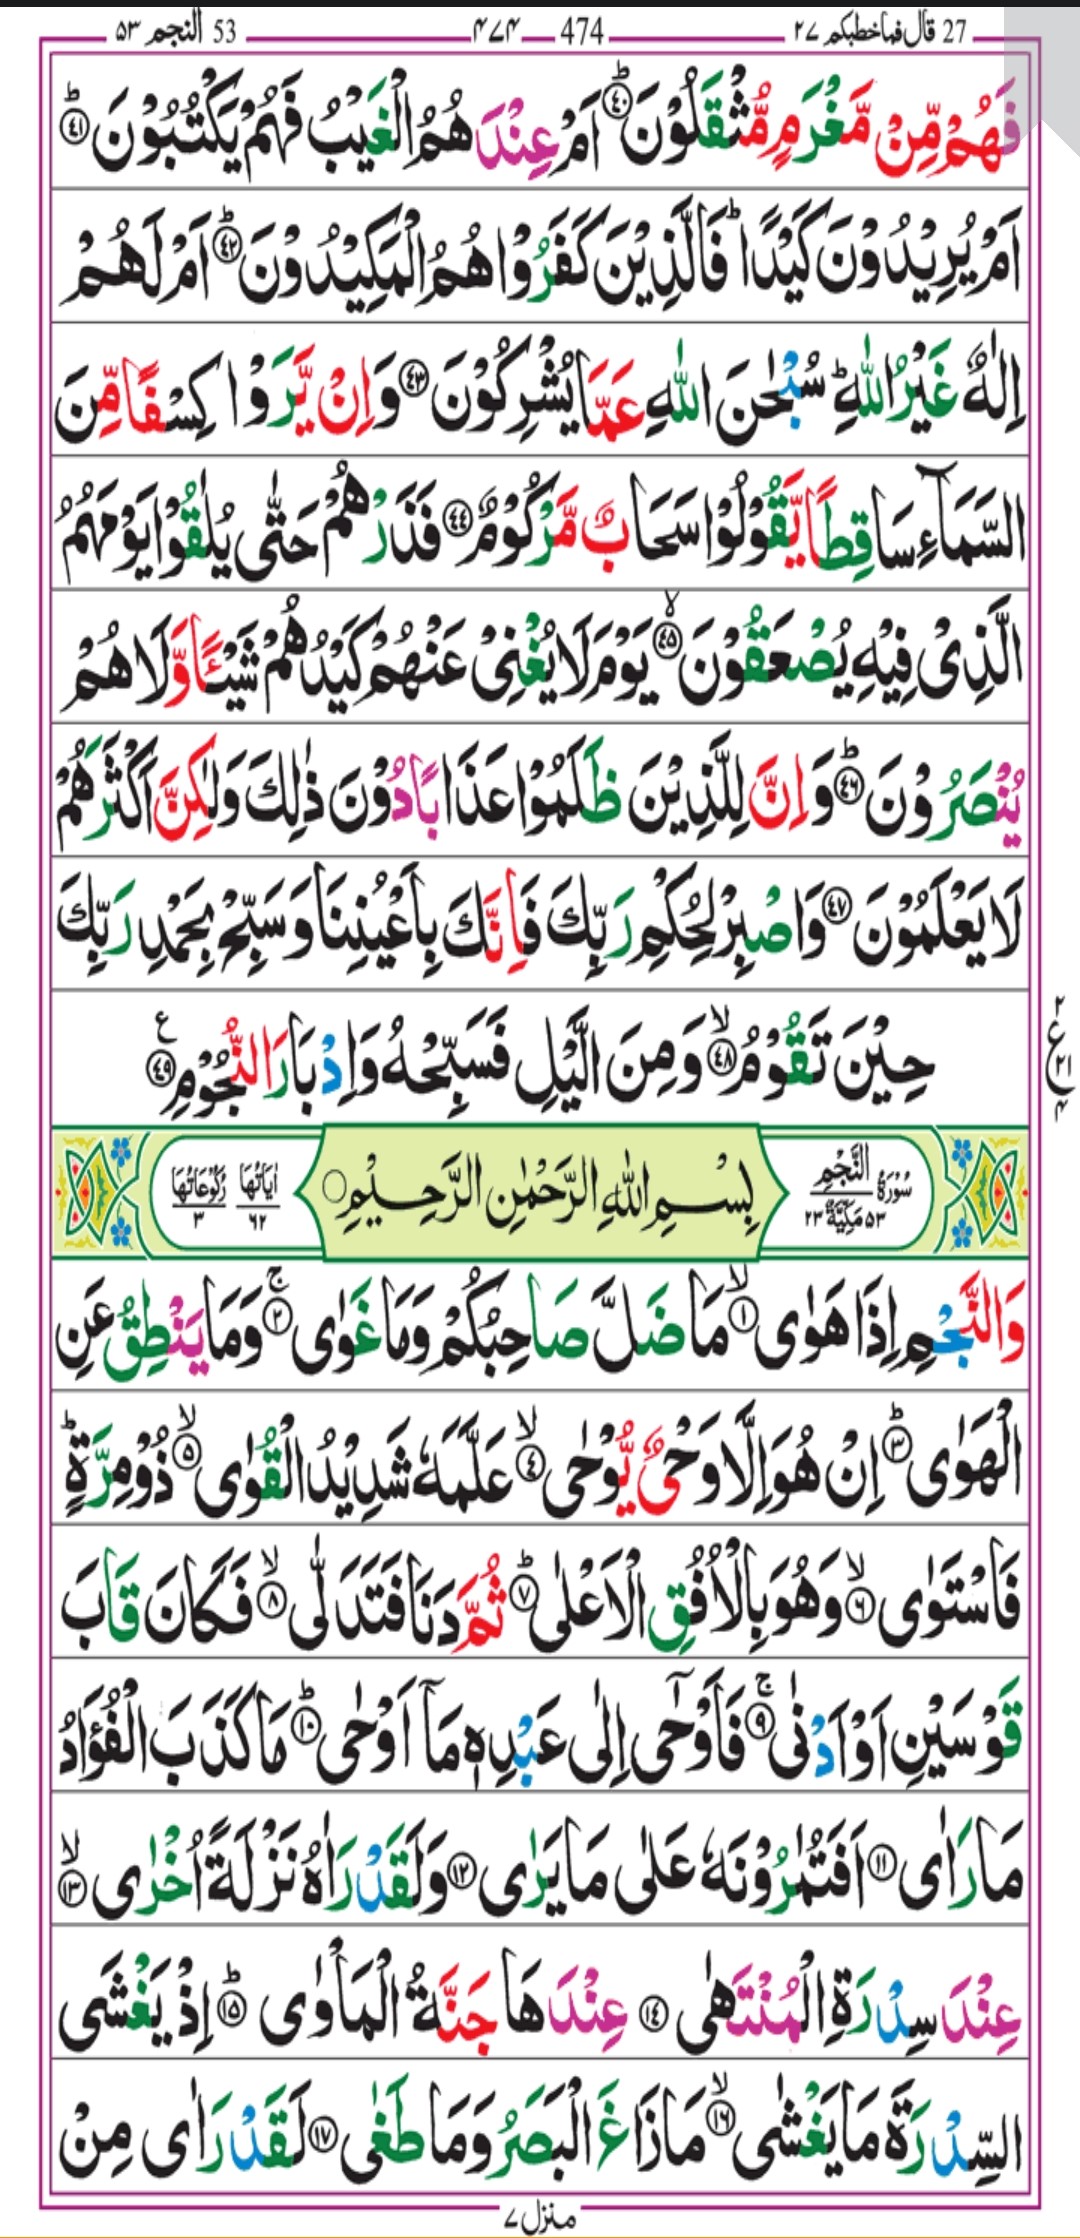 27 قال فما خطبكم ٢٧ 474 ۴۷۴ 53 النجم ۵۳
فَهُمْ مِّنْ مَّغْرَمٍ مُّثْقَلُوْنَ ؕ﴿۴۰﴾ اَمْ عِنْدَهُمُ الْغَيْبُ فَهُمْ يَكْتُبُوْنَ ؕ﴿۴۱﴾
اَمْ يُرِيْدُوْنَ كَيْدًا ؕ فَالَّذِيْنَ كَفَرُوْا هُمُ الْمَكِيْدُوْنَ ؕ﴿۴۲﴾ اَمْ لَهُمْ
اِلٰهٌ غَيْرُ اللّٰهِ ؕ سُبْحٰنَ اللّٰهِ عَمَّا يُشْرِكُوْنَ ﴿۴۳﴾ وَاِنْ يَّرَوْا كِسْفًا مِّنَ
السَّمَآءِ سَاقِطًا يَّقُوْلُوْا سَحَابٌ مَّرْكُوْمٌ ﴿۴۴﴾ فَذَرْهُمْ حَتّٰى يُلٰقُوْا يَوْمَهُمُ
الَّذِىْ فِيْهِ يُصْعَقُوْنَ ۙ﴿۴۵﴾ يَوْمَ لَا يُغْنِىْ عَنْهُمْ كَيْدُهُمْ شَيْـًٔا وَّلَا هُمْ
يُنْصَرُوْنَ ؕ﴿۴۶﴾ وَاِنَّ لِلَّذِيْنَ ظَلَمُوْا عَذَابًا دُوْنَ ذٰلِكَ وَلٰكِنَّ اَكْثَرَهُمْ
لَا يَعْلَمُوْنَ ﴿۴۷﴾ وَاصْبِرْ لِحُكْمِ رَبِّكَ فَاِنَّكَ بِاَعْيُنِنَا وَسَبِّحْ بِحَمْدِ رَبِّكَ
حِيْنَ تَقُوْمُ ۙ﴿۴۸﴾ وَمِنَ الَّيْلِ فَسَبِّحْهُ وَاِدْبَارَ النُّجُوْمِ ﴿۴۹﴾ ع
٢ ع ٢١ ۴
سُوْرَةُ النَّجْمِ ۵۳ مَكِّيَّةٌ ٢٣ بِسْمِ اللّٰهِ الرَّحْمٰنِ الرَّحِيْمِ ○ اٰيَاتُهَا ٦٢ رُكُوْعَاتُهَا ٣
وَالنَّجْمِ اِذَا هَوٰى ۙ﴿۱﴾ مَا ضَلَّ صَاحِبُكُمْ وَمَا غَوٰى ۚ﴿۲﴾ وَمَا يَنْطِقُ عَنِ
الْهَوٰى ؕ﴿۳﴾ اِنْ هُوَ اِلَّا وَحْىٌ يُّوْحٰى ۙ﴿۴﴾ عَلَّمَهٗ شَدِيْدُ الْقُوٰى ۙ﴿۵﴾ ذُوْ مِرَّةٍ ؕ
فَاسْتَوٰى ۙ﴿۶﴾ وَهُوَ بِالْاُفُقِ الْاَعْلٰى ؕ﴿۷﴾ ثُمَّ دَنَا فَتَدَلّٰى ۙ﴿۸﴾ فَكَانَ قَابَ
قَوْسَيْنِ اَوْ اَدْنٰى ۚ﴿۹﴾ فَاَوْحٰٓى اِلٰى عَبْدِهٖ مَاۤ اَوْحٰى ؕ﴿۱۰﴾ مَا كَذَبَ الْفُؤَادُ
مَا رَاٰى ﴿۱۱﴾ اَفَتُمٰرُوْنَهٗ عَلٰى مَا يَرٰى ﴿۱۲﴾ وَلَقَدْ رَاٰهُ نَزْلَةً اُخْرٰى ۙ﴿۱۳﴾
عِنْدَ سِدْرَةِ الْمُنْتَهٰى ﴿۱۴﴾ عِنْدَهَا جَنَّةُ الْمَاْوٰى ؕ﴿۱۵﴾ اِذْ يَغْشَى
السِّدْرَةَ مَا يَغْشٰى ۙ﴿۱۶﴾ مَا زَاغَ الْبَصَرُ وَمَا طَغٰى ﴿۱۷﴾ لَقَدْ رَاٰى مِنْ
منزل ٧